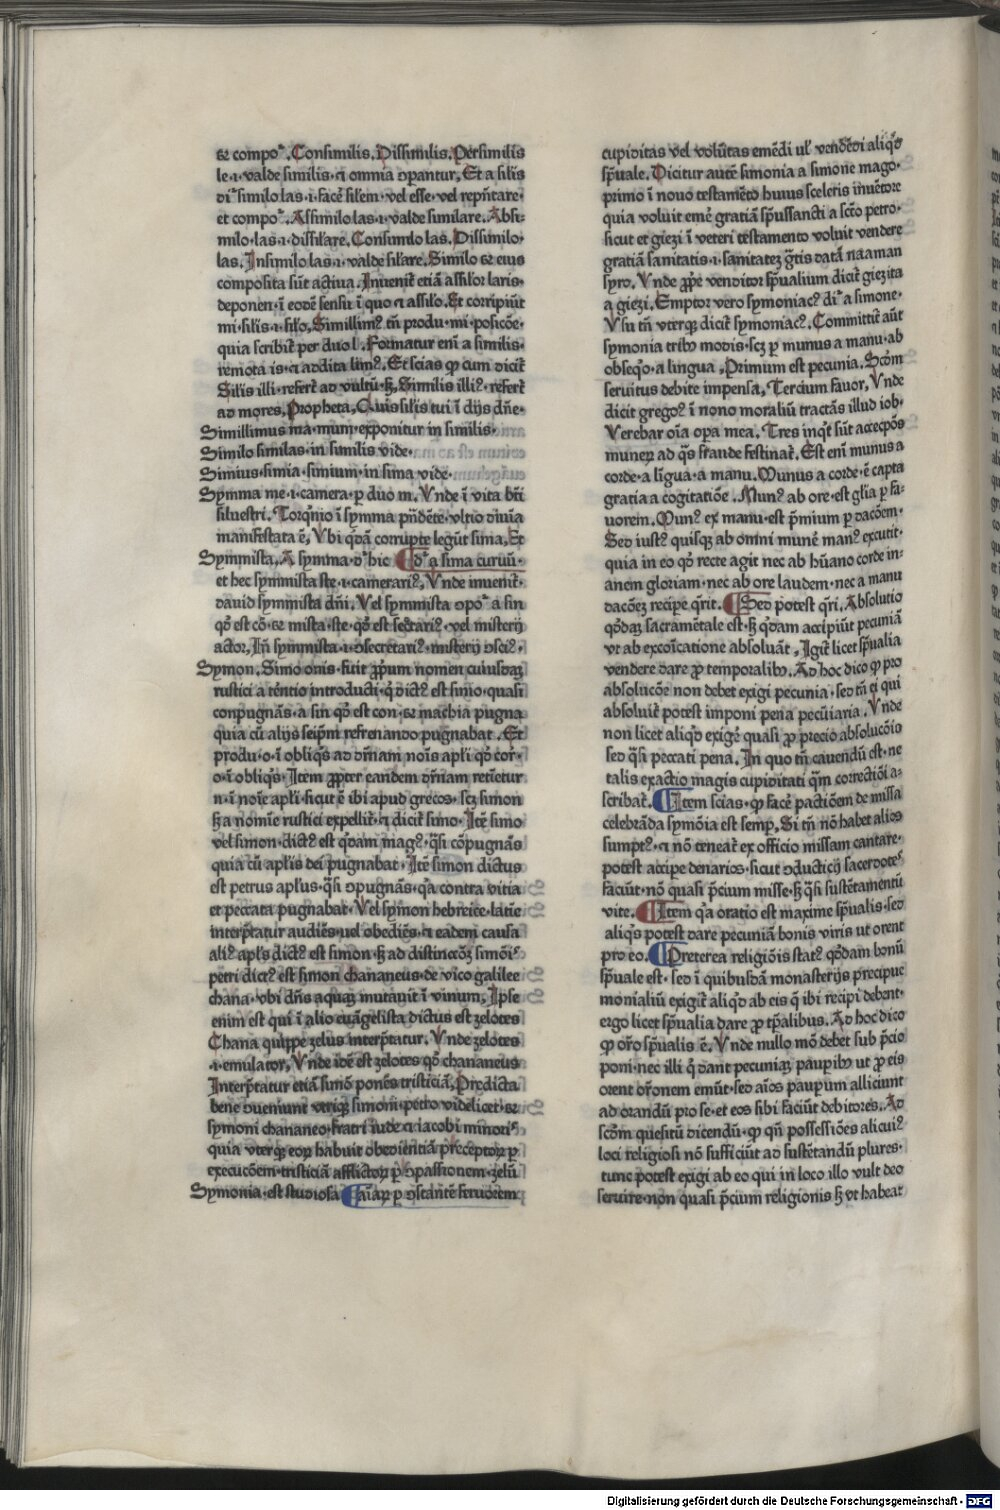 et compoʳ. Consimilis. Dissimilis. Persimilis
le·i·valde similis·⁊ omnia ꝯparantur. Et a silis
diʳ similo las·i·facē silem·vel esse·vel rep̄ntare·
et compoʳ. Assimilo las·i·valde similare. Absi-
milo·las·i·dissilare. Consimilo las. Dissimilo·
las. Insimilo las·i·valde silare. Similo et eius
composita sūt actiua. Inuenit etiā assilor laris·
deponen·ī eodē sensu ī quo ⁊ assilo. Et corripiūt
mi·silis·i·silo. Simillimꝰ tn̄ produ·mi·posicōe·
quia scribit per duo l. Formatur enī a similis·
remota is·⁊ addita limꝰ. Et scias ꝙ cum dicit
Silis illi·refert ad vultū·sꝫ. Similis illiꝰ·refert
ad mores. Propheta. Quis silis tui ī dijs dn̄e·
Simillimus ma·mum·exponitur in similis·
Similo similas·in similis vide·
Simius·simia·simium·in sima vide·
Symma me·i·camera·p duo m. Vnde ī vita bt̄i
siluestri. Torq̄nio ī symma pn̄dēte·vltio diuīa
manifestata ē. Vbi qdā corrupte legūt sima. Et
Symmista. A symma·dʳ hic ¶ dʳ a sima curuū·
et hec symmista ste·i·camerariꝰ. Vnde inuenit·
dauid symmista dn̄i. Vel symmista ꝯpoʳ a sin
qd est cō·et mista·ste·qd est secetariꝰ·vel misterij
actor. In̄ symmista·i·ꝯsecretariꝰ·misterij ꝯsciꝰ·
Symon. Simo onis·fuit ꝓprum nomen cuiusdaꝫ
rustici a tēntio introducti·q dictꝰ est simo·quasi
conpugnās·a sin qd est con·et machia pugna
quia cū alijs seipm refrenando pugnabat. Et
produ·o·ī obliqs ad drn̄am nois apli qd cor·
o·ī obliqs. Item ꝓpter eandem drn̄am retinetur
n·ī noīe apli·sicut ē ibi apud grecos·scꝫ simon
sꝫ a nomīe rustici expellit·⁊ dicit simo. Itē simo
vel simon·dictꝰ est qdam magꝰ·q̄si cōpugnās
quia cū aplis dei pugnabat. Itē simon dictus
est petrus aplus·q̄si ꝯpugnās·qa contra vitia
et peccata pugnabat. Vel symon hebreice·latīe
interp̄tatur audiēs·uel obediēs·⁊ eadem causa
aliꝰ apls dictꝰ est simon·sꝫ ad distincōꝫ simōiˢ
petri dictꝰ est simon chananeus·de vico galilee
chana·vbi dn̄s aquaꝫ mutauit ī vinum. Ipse
enim est qui ī alio euāgelista dictus est zelotes
Chana quippe zelus interp̄tatur. Vnde zelotes
·i·emulator. Vnde idē est zelotes qd chananeus
Interp̄tatur etiā simō ponēs tristiciā. Predicta
bene ꝯueniunt vtriqꝫ simoni·petro videlicet·et
symoni chananeo·fratri iude ⁊ iacobi minoriˢ
quia vterqꝫ eoꝝ habuit obedientiā preceptoꝝ p
execucōem·tristiciā afflictoꝝ p ꝯpassionem·zelū
Symonia·est studiosa ¶ aīaꝝ p ꝯstantē feruorem
cupiditas vel volūtas emēdi ul̄ vendēdi aliqd
spūale. Dicitur autē simonia a simone mago·
primo ī nouo testamēto huius sceleris inuētore
quia voluit emē gratiā spūssancti a scō petro·
sicut et giezi ī veteri testamento voluit vendere
gratiā sanitatis·i·sanitateꝫ gr̄tis datā naaman
syro. Vnde ꝓpe venditor spūalium dicit giezita
a giezi. Emptor vero symoniacꝰ diʳ a simone·
Vsu tn̄ vterqꝫ dicit symoniacꝰ. Committit aūt
symonia tribꝰ modis·scꝫ p munus a manu·ab
obseqo·a lingua. Primum est pecunia. Scdm
seruitus debite impensa. Tercium fauor. Vnde
dicit gregoꝰ ī nono moraliū tractās illud iob·
Verebar oīa opa mea. Tres inqt sūt accepcōs
muneꝝ ad qs fraude festinat. Est enī munus a
corde·a līgua·a manu. Munus a corde·ē capta
gratia a cogitatiōe. Munꝰ ab ore·est gl̄ia p fa-
uorem. Munꝰ ex manu·est p̄mium p dacōem·
Sed iustꝰ quisqꝫ ab omni munē manꝰ excutit·
quia in eo qd recte agit nec ab hūano corde in-
anem gloriam·nec ab ore laudem·nec a manu
dacōeꝫ recipe q̄rit. ¶ Sed potest q̄ri. Absolutio
qdaꝫ sacramētale est·sꝫ qdam accipiūt pecuniā
vt ab excōicatione absoluāt. Igit licet spūalia
vendere dare ꝓ temporalibꝰ. Ad hoc dico ꝙ pro
absolucōe non debet exigi pecunia·sed tn̄ ei qui
absoluit potest imponi pena pecūiaria. Vnde
non licet aliqd exigē quasi ꝓ precio absolucōis
sed q̄si peccati pena. In quo tn̄ cauendū est·ne
talis exactio magis cupiditati q̄m correctiōi a-
scribat. ¶ Item scias·ꝙ facē pactiōem de missa
celebrāda symōia est semp. Si tn̄ nō habet alios
sumptꝰ·⁊ nō teneat ex officio missam cantare·
potest accipe denarios·sicut ꝯducticij sacerdoteˢ
faciūt·nō quasi p̄cium misse·sꝫ q̄si sustētamentū
vite. ¶ Item qa oratio est maxime spūalis·sed
aliqs potest dare pecuniā bonis viris ut orent
pro eo. ¶ Preterea religiōis statꝰ qdam bonū
spūale est·sed ī quibusdā monasterijs precipue
monialiū exigit aliqd ab eis q ibi recipi debent·
ergo licet spūalia dare ꝓ tpalibus. Ad hoc dico
ꝙ or̄o spūalis ē. Vnde nullo mō debet sub p̄cio
poni·nec illi q dant pecuniaꝫ paupibꝰ ut ꝓ eis
orent or̄onem emūt·sed aīos paupum alliciunt
ad orandū pro se·et eos sibi faciūt debitores. Ad
scdm quesitū dicendū·ꝙ qn̄ possessiōes alicuiꝰ
loci religiosi nō sufficiūt ad sustētandū plures·
tunc potest exigi ab eo qui in loco illo vult deo
seruire·non quasi p̄cium religionis sꝫ vt habeat
Digitalisierung gefördert durch die Deutsche Forschungsgemeinschaft - DFG